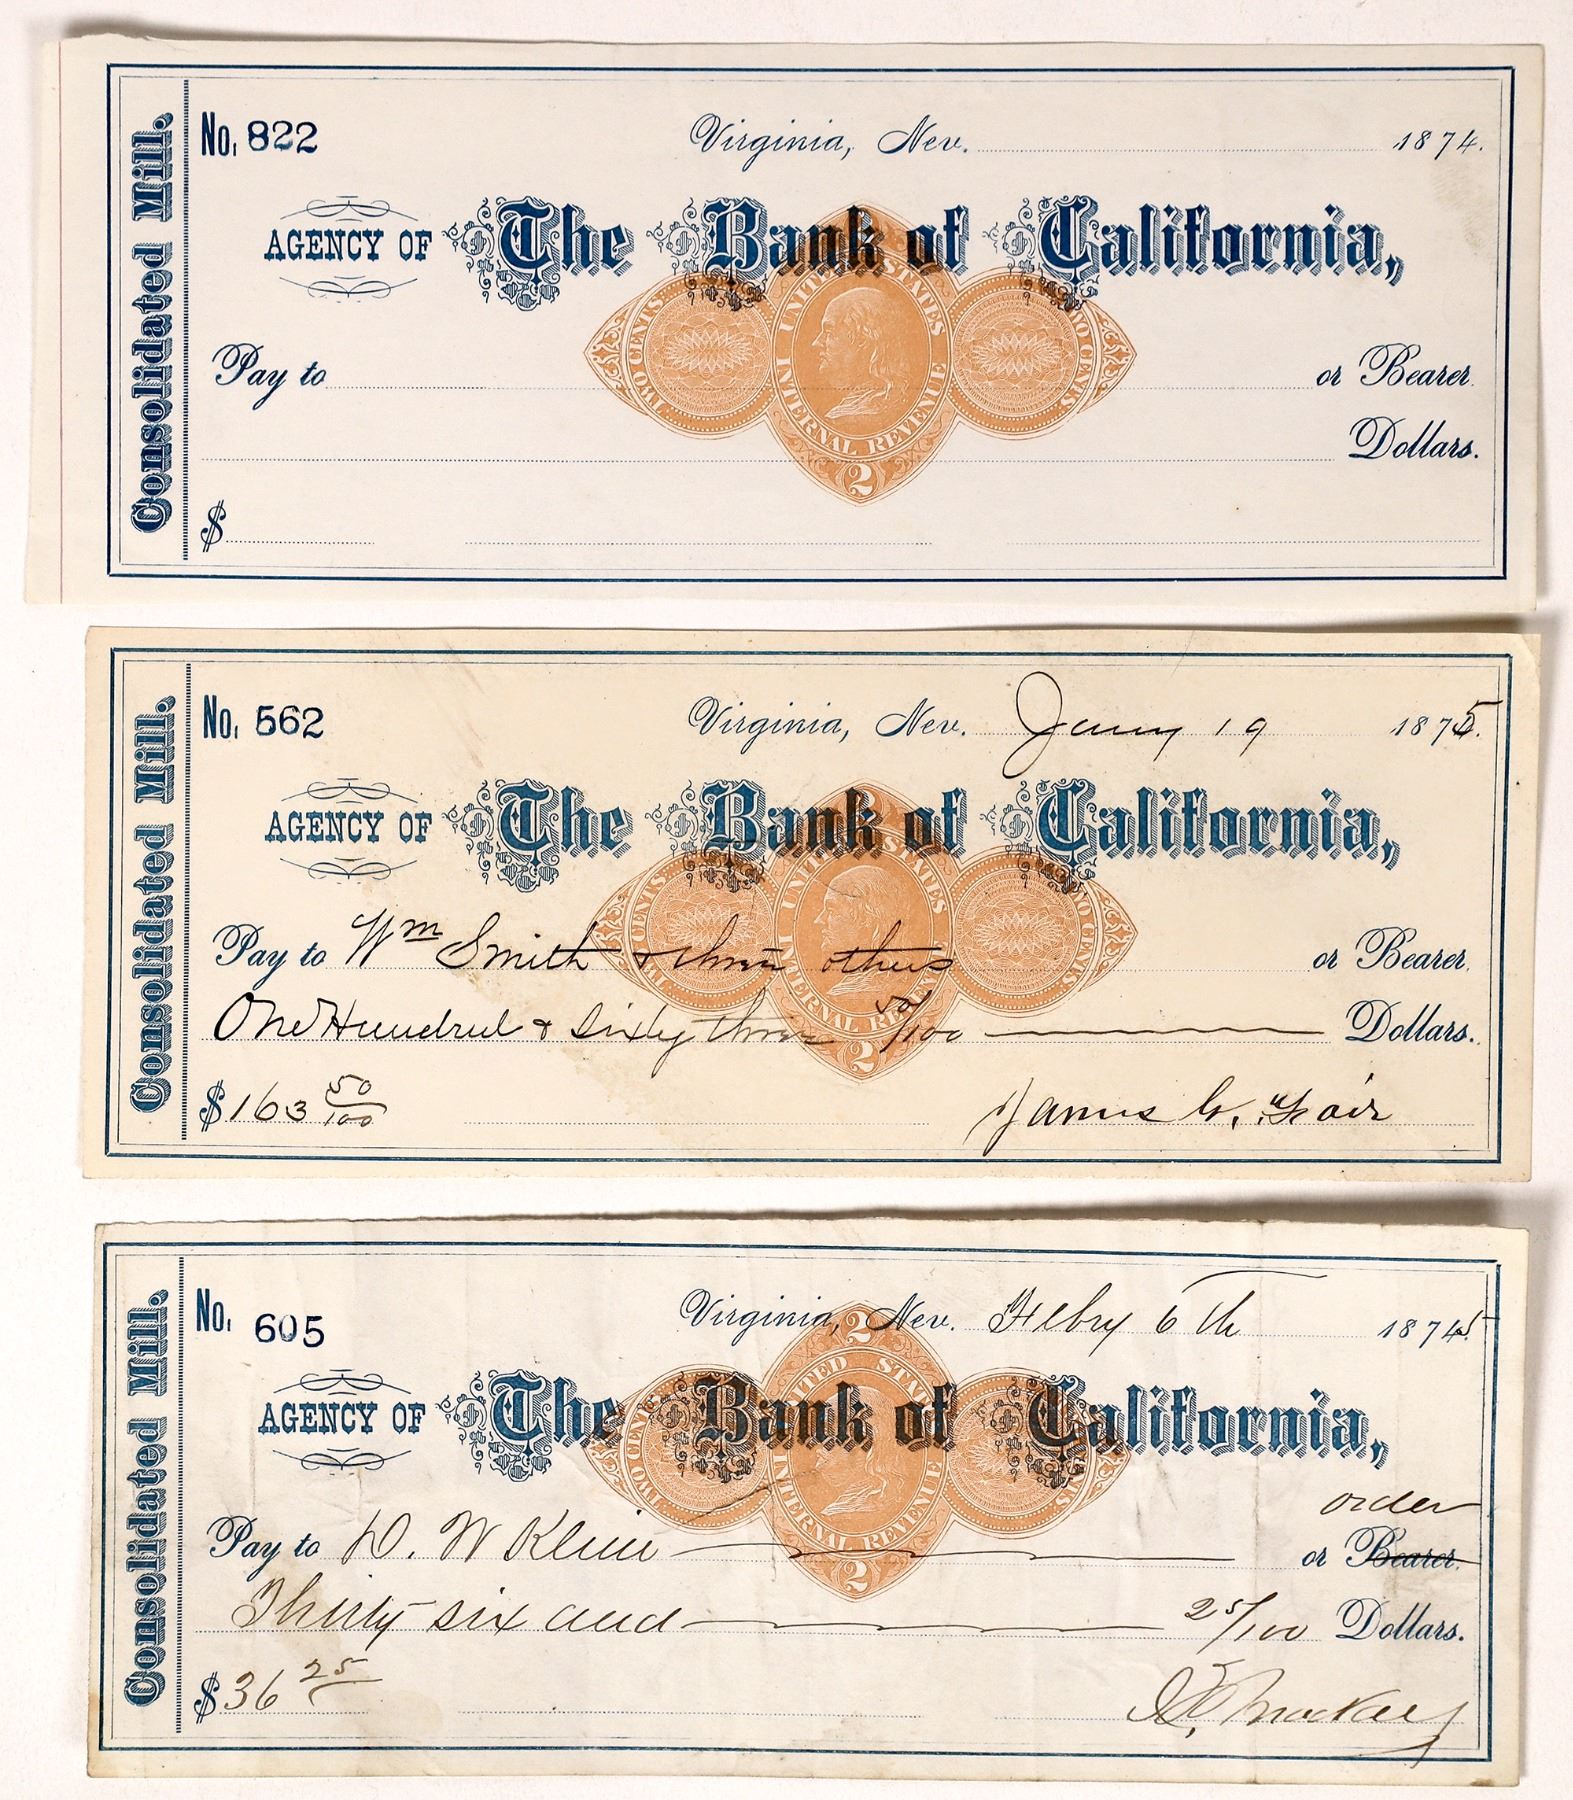 Consolidated Mill.
No. 822
Virginia, Nev. 1874.
AGENCY OF The Bank of California,
UNITED STATES
INTERNAL REVENUE
TWO CENTS
TWO CENTS
2
Pay to or Bearer.
Dollars.
$
Consolidated Mill.
No. 562
Virginia, Nev. Jany 19 1875.
AGENCY OF The Bank of California,
2
UNITED STATES
INTERNAL REVENUE
TWO CENTS
TWO CENTS
2
Pay to Wm Smith & three others or Bearer.
One Hundred & Sixty three 50/100 Dollars.
$163 50/100
James G. Fair
Consolidated Mill.
No. 605
Virginia, Nev. Febry 6th 1875
2
AGENCY OF The Bank of California,
UNITED STATES
INTERNAL REVENUE
TWO CENTS
TWO CENTS
2
order
Pay to D. W Kline or Bearer.
Thirty six and 25/100 Dollars.
$36 25
Mackay